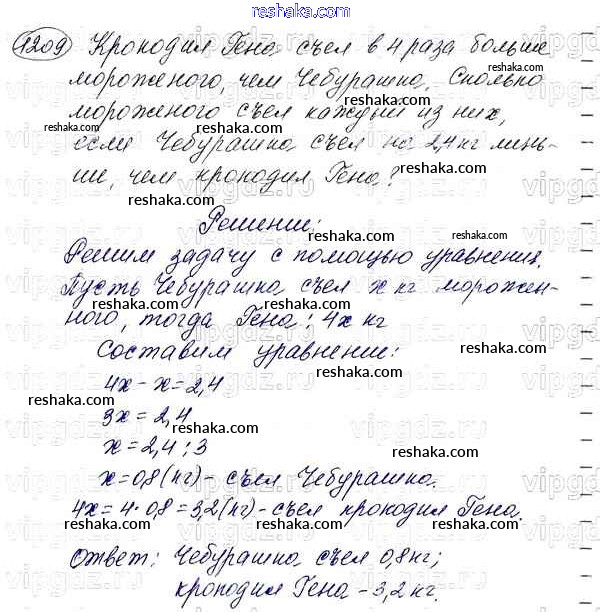 reshaka.com
1209) Крокодил Гена съел в 4 раза больше
мороженого, чем Чебурашка. Сколько
reshaka.com
мороженого съел каждый из них,
reshaka.com
если Чебурашка съел на 2,4 кг мень-
reshaka.com
ше, чем крокодил Гена?
reshaka.com
Решение:
reshaka.com
Решим задачу с помощью уравнения.
reshaka.com
Пусть Чебурашка съел x кг морожен-
reshaka.com
ного, тогда Гена: 4x кг
reshaka.com
Составим уравнение:
reshaka.com
4x - x = 2,4
reshaka.com
3x = 2,4
x = 2,4 : 3
reshaka.com
x = 0,8 (кг) - съел Чебурашка.
reshaka.com
4x = 4 · 0,8 = 3,2 (кг) - съел крокодил Гена.
reshaka.com
Ответ: Чебурашка съел 0,8 кг;
reshaka.com
крокодил Гена - 3,2 кг.
reshaka.com
vipgdz.ru